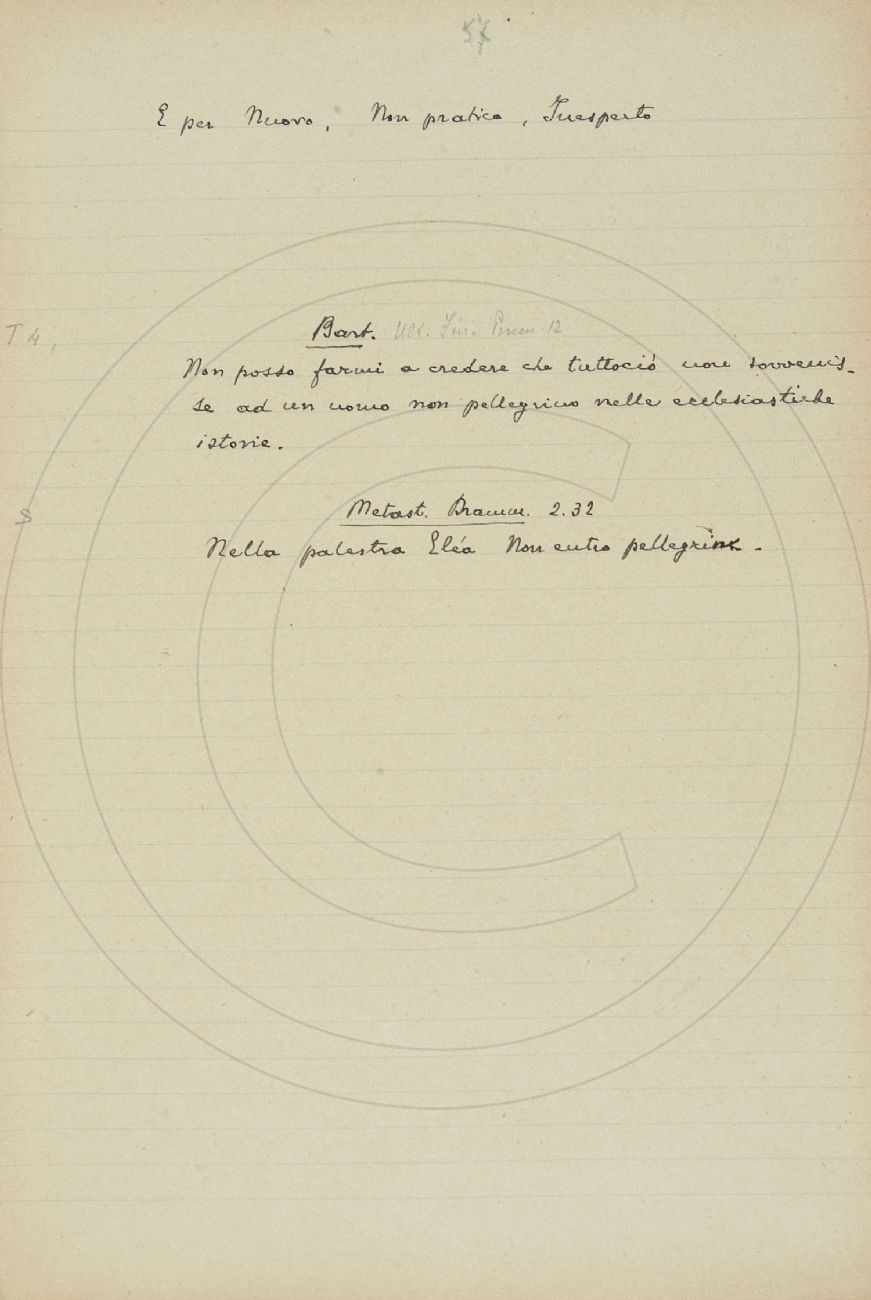 57
E per Nuovo, Non pratico, Inesperto
T 4,
Bart.
Non posso farmi a credere che tuttociò non sovvenis-
se ad un uomo non pellegrino nelle ecclesiastiche
istorie.
S
Metast. Dramm. 2.32
Nella palestra Eléa Non entro pellegrin.